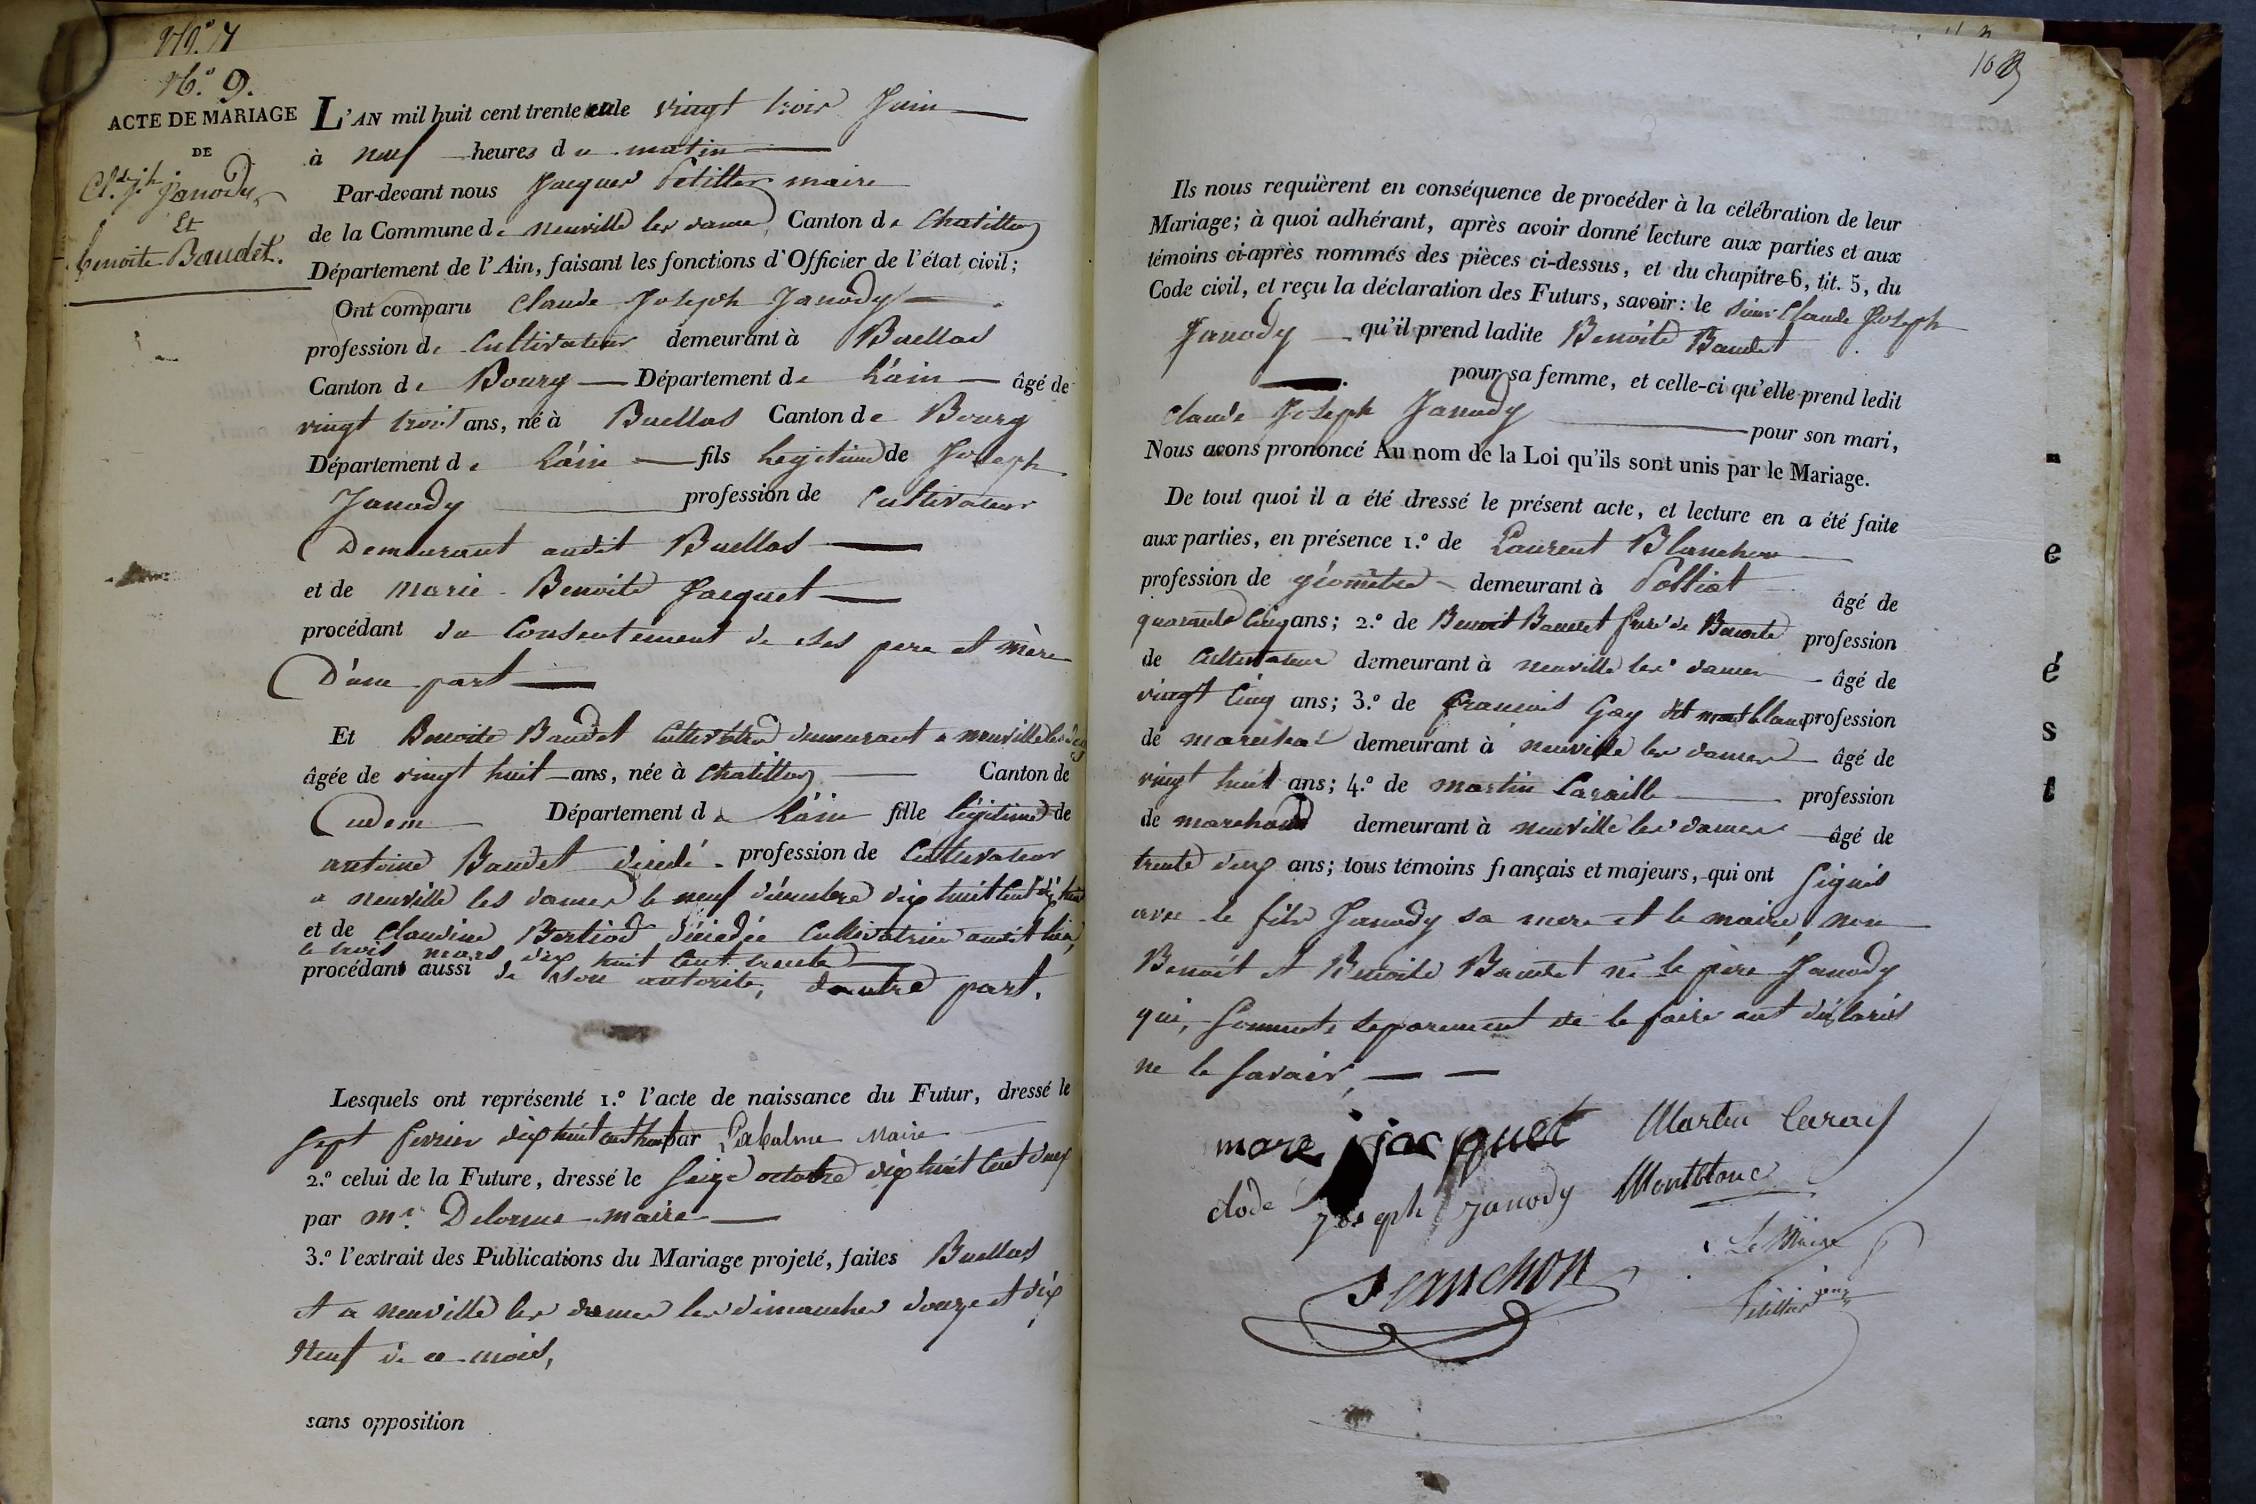 N.º 9.
ACTE DE MARIAGE
DE
Cl.de J.h Janody
Et
benoite Baudet.
L'AN mil huit cent trente un le vingt trois Juin
à neuf heures du matin
Par-devant nous Jacques Petitter maire
de la Commune de neuville les dames, Canton de Chatillon
Département de l'Ain, faisant les fonctions d'Officier de l'état civil;
Ont comparu Claude Joseph Janody
profession de Cultivateur demeurant à Buellas
Canton de Bourg Département de L'ain âgé de
vingt trois ans, né à Buellas Canton de Bourg
Département de L'ain fils legitime de Joseph
Janody profession de Cultivateur
Demeurant audit Buellas
et de Marie Benoite Jacquet
procédant du Consentement de ses pere et mère
D'une part
Et Benoite Baudet Cultivatrice demeurant a neuville les d.
âgée de vingt huit ans, née à Chatillon Canton de
Département de L'ain fille légitime de
antoine Baudet décédé profession de Cultivateur
a neuville les dames le neuf décembre dix huit cent dix huit
et de Claudine Bertiod décédée Cultivatrice audit lieu,
le trois mars dix huit cent trente
procédant aussi de son autorité, d'autre part.
Lesquels ont représenté 1.º l'acte de naissance du Futur, dressé le
sept fevrier dix huit cent huit par Labalme Maire
2.º celui de la Future, dressé le seize octobre dix huit cent deux
par M.r Delorme maire
3.º l'extrait des Publications du Mariage projeté, faites Buellas
et a neuville les dames les dimanches douze et dix
neuf de ce mois,
sans opposition
Ils nous requièrent en conséquence de procéder à la célébration de leur
Mariage; à quoi adhérant, après avoir donné lecture aux parties et aux
témoins ci-après nommés des pièces ci-dessus, et du chapitre 6, tit. 5, du
Code civil, et reçu la déclaration des Futurs, savoir: le sieur Claude Joseph
Janody qu'il prend ladite Benoite Baudet
pour sa femme, et celle-ci qu'elle prend ledit
Claude Joseph Janody pour son mari,
Nous avons prononcé Au nom de la Loi qu'ils sont unis par le Mariage.
De tout quoi il a été dressé le présent acte, et lecture en a été faite
aux parties, en présence 1.º de Laurent Blanchon
profession de géomètre demeurant à Polliat âgé de
quarante cinq ans; 2.º de Benoit Baudet frère de Benoite profession
de Cultivateur demeurant à neuville les dames âgé de
vingt cinq ans; 3.º de francois Gay dit montblanc profession
de marechal demeurant à neuville les dames âgé de
vingt huit ans; 4.º de martin Caraille profession
de marchand demeurant à neuville les dames âgé de
trente deux ans; tous témoins français et majeurs, qui ont signés
avec le fils Janody sa mere et le maire, non
Benoit et Benoite Baudet ni le père Janody
qui, sommés separement de le faire ont déclarés
ne le savoir,
mare jacquet Martin Caray
clode Joseph Janody Montblanc
Blanchon
Le Maire
e
é
s
t